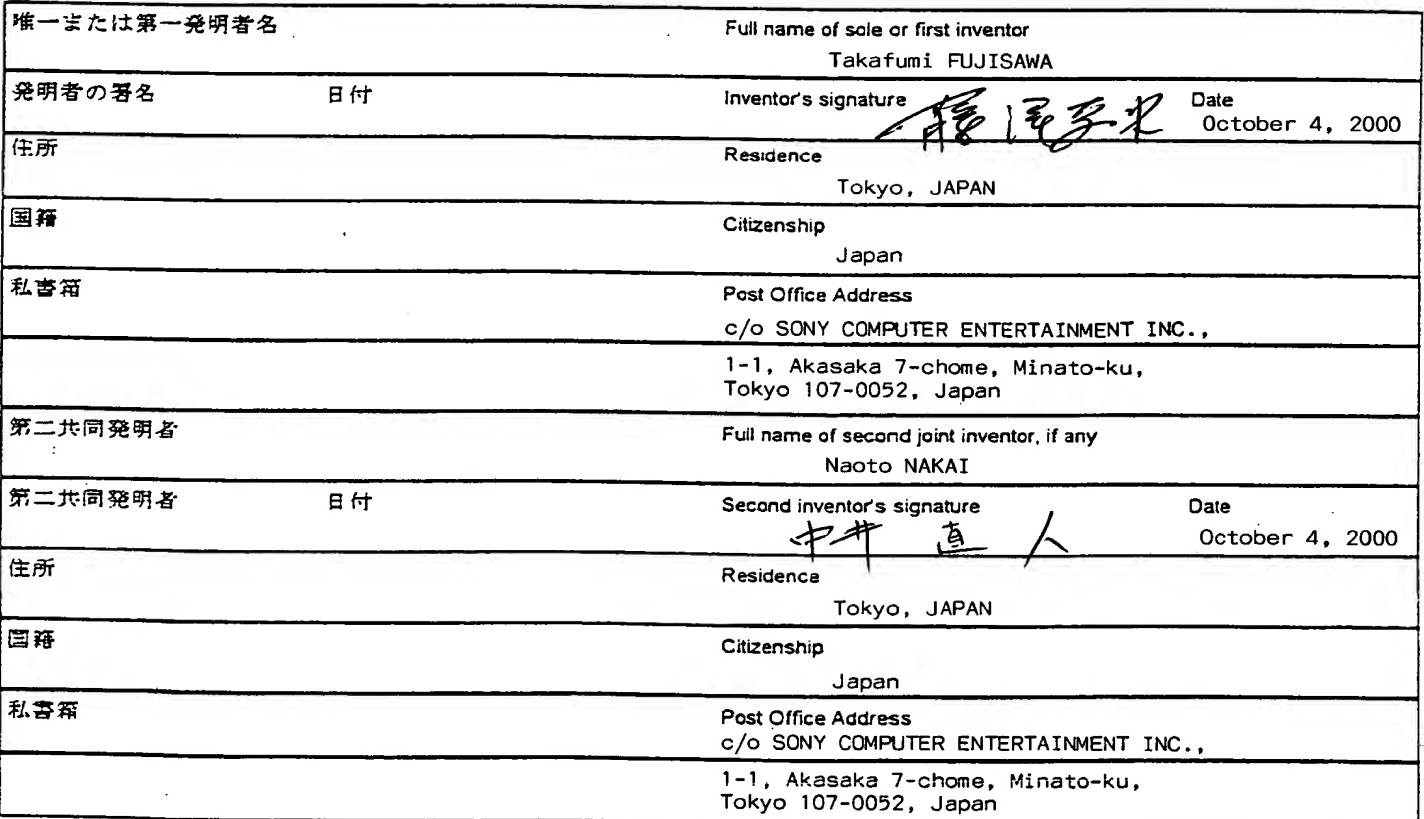 唯一または第一発明者名
Full name of sole or first inventor
Takafumi FUJISAWA
発明者の署名 日付
Inventor's signature 藤澤孝史 Date
October 4, 2000
住所
Residence
Tokyo, JAPAN
国籍
Citizenship
Japan
私書箱
Post Office Address
c/o SONY COMPUTER ENTERTAINMENT INC.,
1-1, Akasaka 7-chome, Minato-ku,
Tokyo 107-0052, Japan
第二共同発明者
Full name of second joint inventor, if any
Naoto NAKAI
第二共同発明者 日付
Second inventor's signature Date
中井 直人 October 4, 2000
住所
Residence
Tokyo, JAPAN
国籍
Citizenship
Japan
私書箱
Post Office Address
c/o SONY COMPUTER ENTERTAINMENT INC.,
1-1, Akasaka 7-chome, Minato-ku,
Tokyo 107-0052, Japan